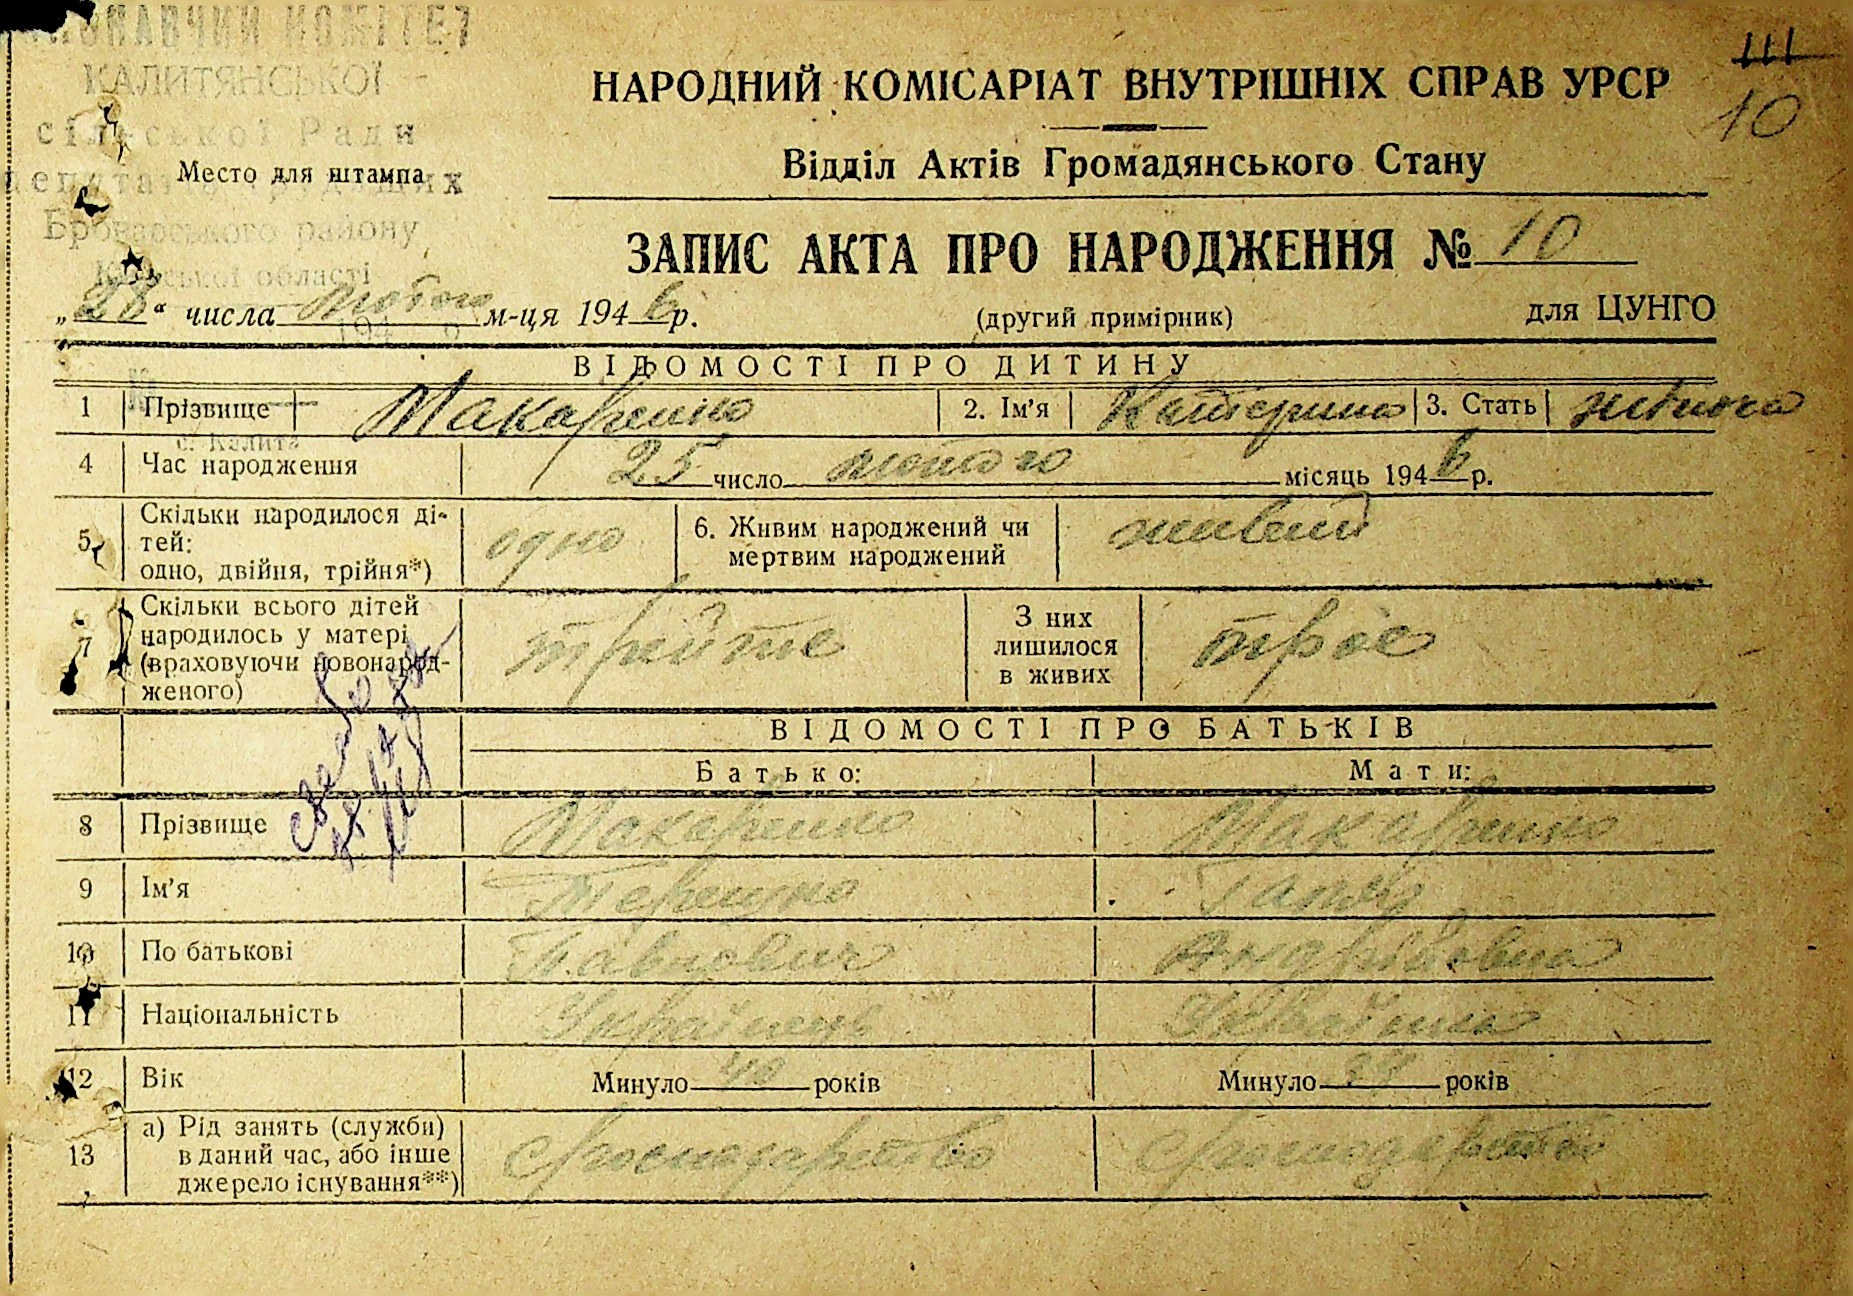 КОНАВЧИЙ КОМІТЕТ
КАЛИТЯНСЬКОЇ
сільської Ради
депута
Броварського району
Київської області
Место для штампа
с. Калита
111
10
НАРОДНИЙ КОМІСАРІАТ ВНУТРІШНІХ СПРАВ УРСР
Відділ Актів Громадянського Стану
ЗАПИС АКТА ПРО НАРОДЖЕННЯ № 10
„28“ числа лютого м-ця 1946 р.
(другий примірник)
для ЦУНГО
ВІДОМОСТІ ПРО ДИТИНУ
1 Прізвище Макаренко 2. Ім'я Катерина 3. Стать жіноча
4 Час народження 25 число лютого місяць 1946 р.
5 Скільки народилося ді-
тей:
одно, двійня, трійня*) одно
6. Живим народжений чи
мертвим народжений живий
7 Скільки всього дітей
народилось у матері
(враховуючи новонарод-
женого) трейте
З них
лишилося
в живих троє
ВІДОМОСТІ ПРО БАТЬКІВ
Батько: Мати:
8 Прізвище Макаренко Макаренко
9 Ім'я Терешко Гапка
10 По батькові Павлович Андріївна
11 Національність Українець Українка
12 Вік Минуло 40 років Минуло років
13 а) Рід занять (служби)
в даний час, або інше
джерело існування**) г господарство г господарство